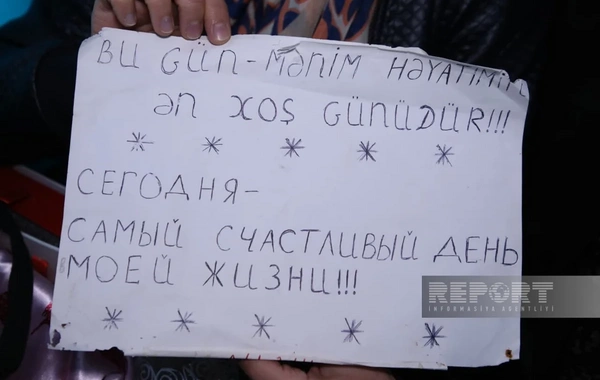 BU GÜN - MƏNİM HƏYATIMIN
ƏN XOŞ GÜNÜDÜR!!!
* * * * *
СЕГОДНЯ -
САМЫЙ СЧАСТЛИВЫЙ ДЕНЬ
МОЕЙ ЖИЗНИ!!!
* * * * *
REPORT
INFORMASIYA AGENTLIYI